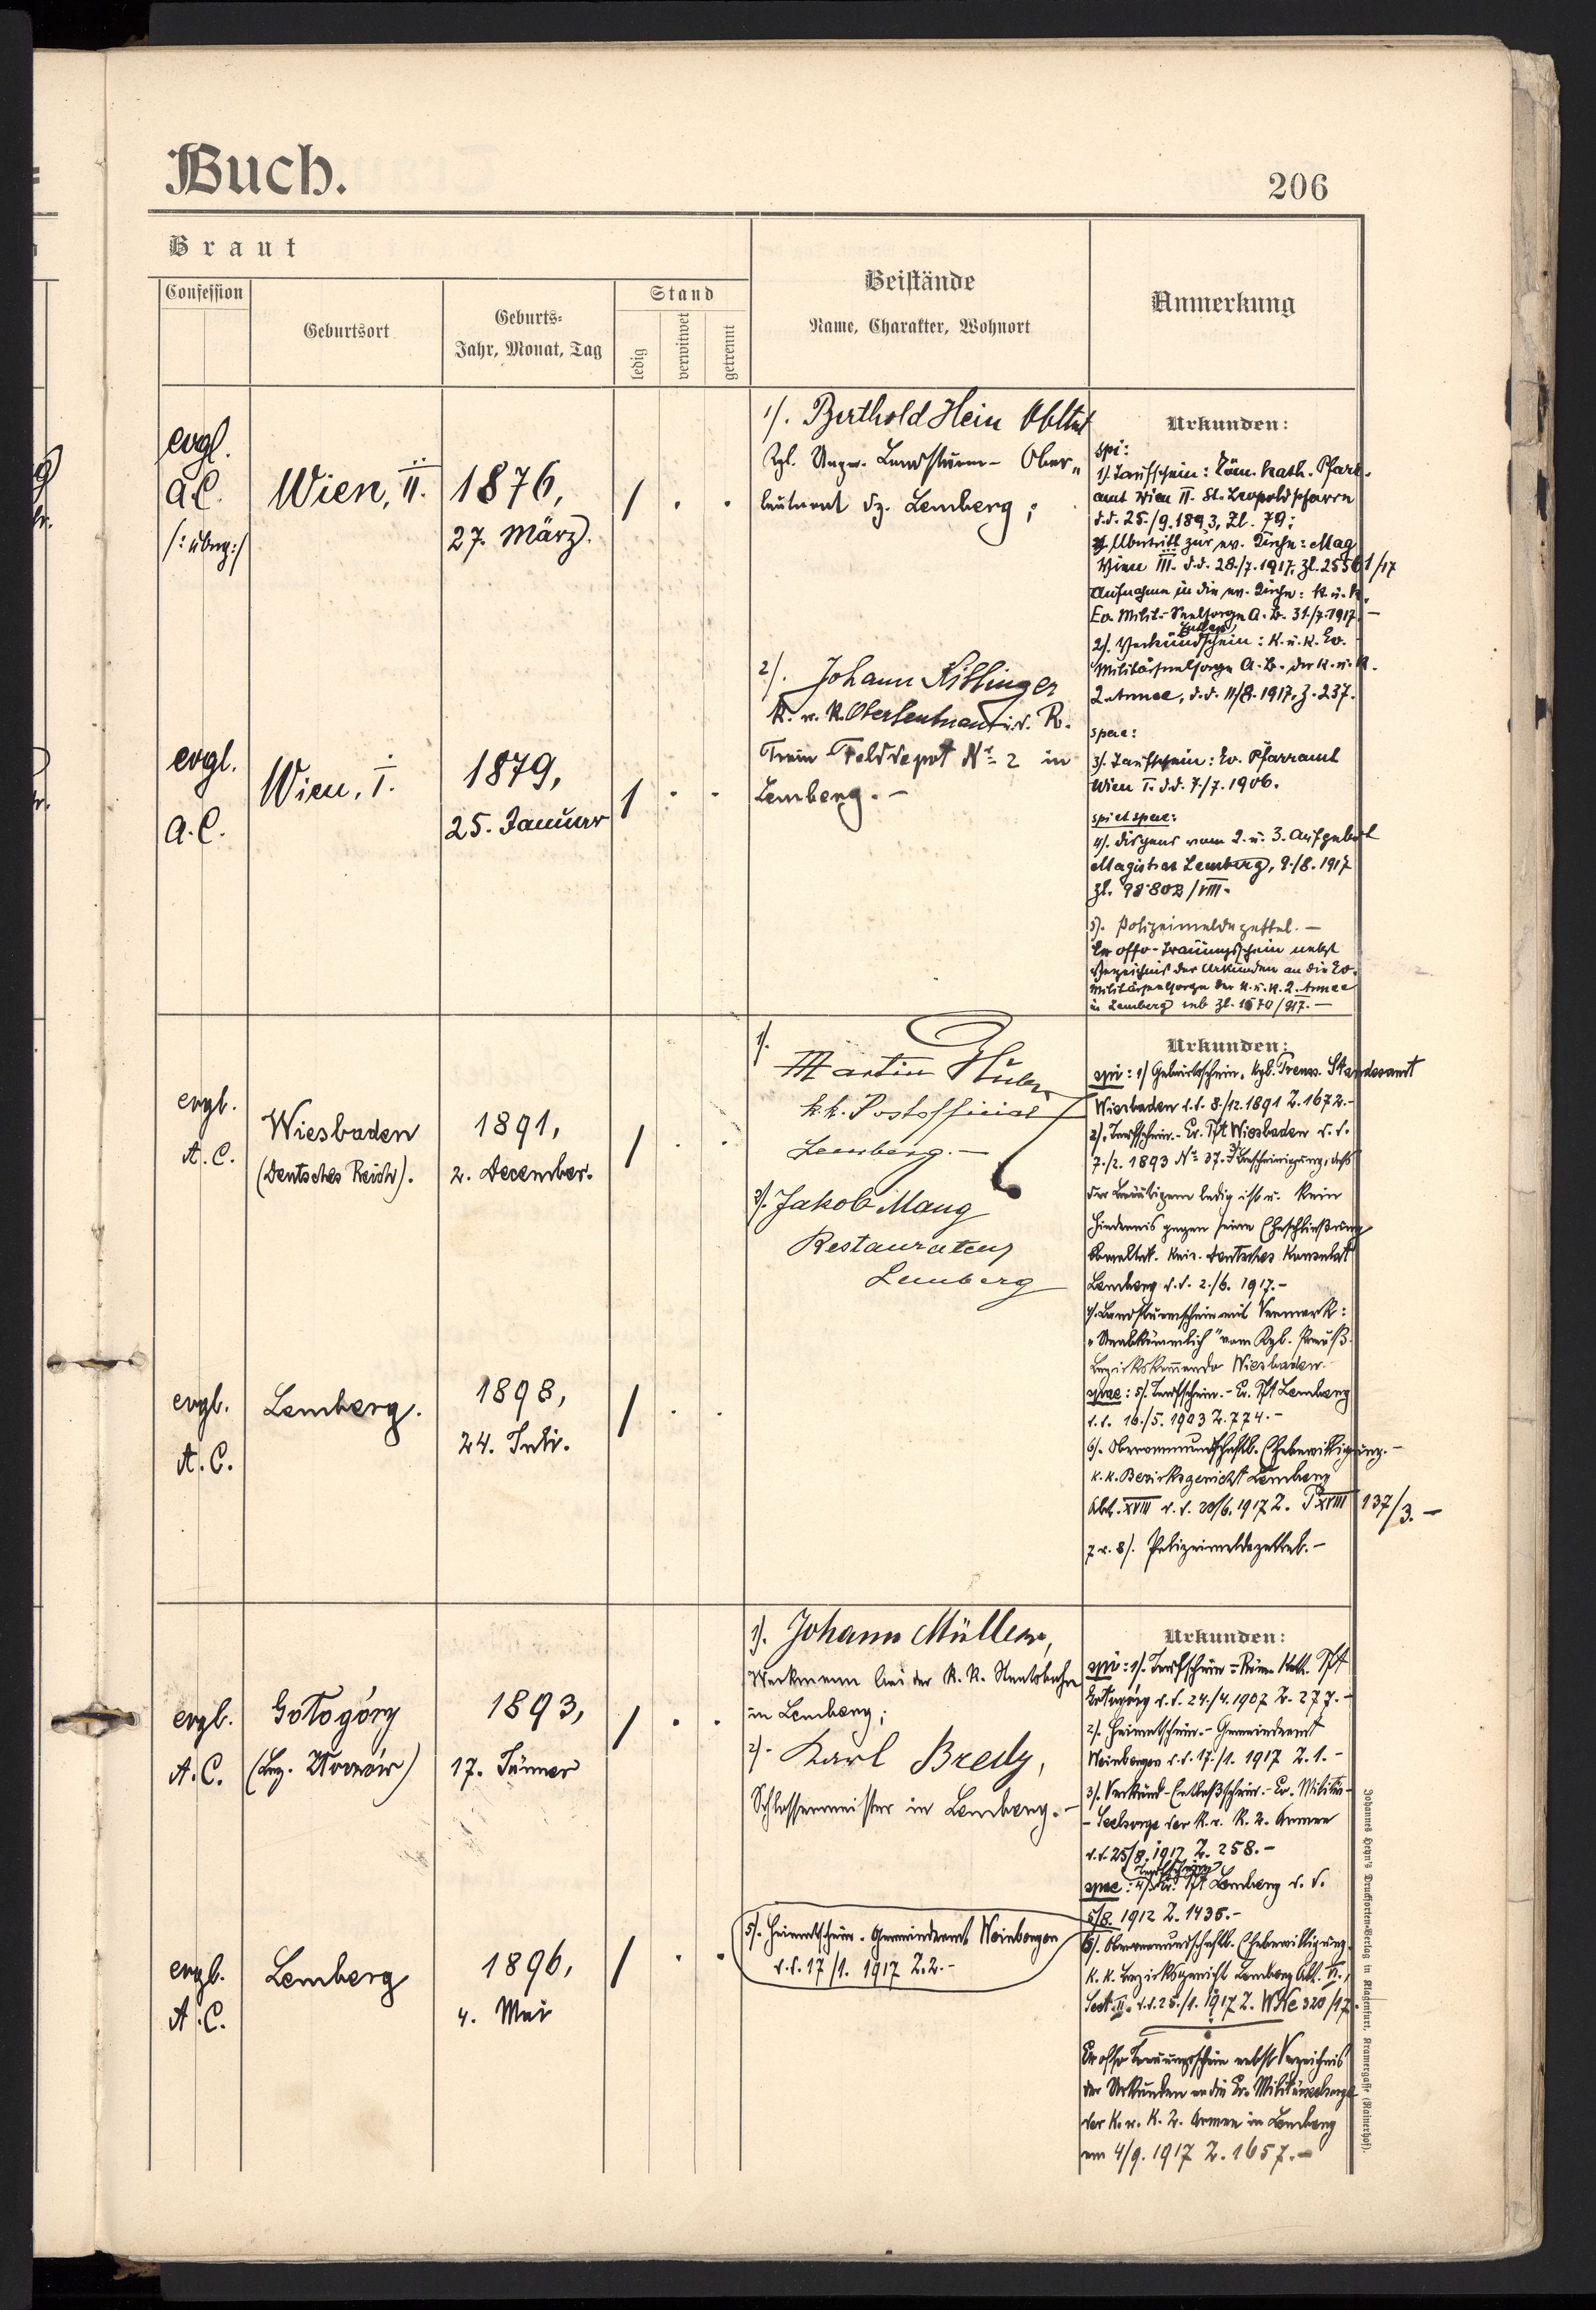 Buch.
206
Braut
Confession
Geburtsort
Geburts-
Jahr, Monat, Tag
Stand
ledig
verwitwet
getrennt
Beistände
Name, Charakter, Wohnort
Anmerkung
evgl.
A.C.
/:übng:/
Wien, II.
1876,
27. März.
/ . .
1/. Berthold Hein Obltnt
Kgl. Ungar. Landsturm- Ober„
leutnant dz. Lemberg;
2/. Johann
k. u. k. Oberleutnant i. d. R.
Train Felddepot Nr 2 in
Lemberg. –
evgl.
A.C.
Wien, I.
1879,
25. Januar
/ . .
Urkunden:
spi:
1/. Taufschein: Röm. kath. Pfarr-
amt Wien II. St. Leopoldspfarre
d.d. 25./9.1893, Zl. 79;
Übertritt zur ev. Kirche: Mag
Wien III. d.d. 28./7.1917, Zl. 25561/17
Aufnahme in die ev. Kirche: k. u. k.
Ev. Milit.- Seelsorge A.B. 31./7.1917. –
2/. Verkündschein: K. u. K. Ev.
Militärseelsorge A.B. der k. u. k.
2. Armee, d.d. 11/8. 1917, Z. 237.
spae:
3/. Taufschein: Ev. Pfarramt
Wien I. d.d. 7./7. 1906.
spi et spae:
4/. Dispens vom 2. u. 3. Aufgebot
Magistrat Lemberg, 9./8. 1917
Zl. 98802/VIII.
5/. Polizeimeldezettel. –
Ex offo-Trauungsschein nebst
Verzeichnis der Urkunden an die Ev.
Militärseelsorge der k. u. k. 2. Armee
in Lemberg sub Zl. 1570/917. –
evgl.
A.C.
Wiesbaden
(Deutsches Reich).
1891,
2. December.
/ . .
1/.
Martin
k.k. Postofficial
Lemberg. –
2/. Jakob Mang
Restaurateur
Lemberg
evgl.
A.C.
Lemberg.
1898,
24. Juli.
/ . .
Urkunden:
spi: 1/ Geburtsschein. Kgl. Preuss. Standesamt
Wiesbaden d.d. 8./12. 1891 Z. 1672. –
2/. Taufschein. - Ev. Pft Wiesbaden d.d.
7./2. 1893 Nr 37. 3/ Bescheinigung, dass
der Bräutigam ledig ist u. kein
Hindernis gegen seine Eheschließung
obwaltet. Kais. Deutsches Konsulat
Lemberg d.d. 2./6. 1917. –
4/. Landsturmschein mit Vermerk:
„Unabkömmlich" vom Kgl. Preuß.
Bezirkskommando Wiesbaden. –
spae: 5/. Taufschein. – Ev. Pft Lemberg
d.d. 16./5. 1903 Z. 774. –
6/. Obervormundschaftl. Ehebewilligung. –
k. k. Bezirksgericht Lemberg
Abt. XVIII d.d. 20/6. 1917 Z. P XVIII 137/3. –
7 u. 8/. Polizeimeldezettel. –
evgl.
A.C.
Gołogóry
(Bez. Złoczów)
1893,
17. Jänner
/ . .
1/. Johann Müller,
Werkmann bei der k. k. Staatsbahn
in Lemberg;
2/. Karl Bredy,
Schlossermeister in Lemberg. –
evgl.
A.C.
Lemberg
1896,
4. Mai
/ . .
5/. Heimatschein. Gemeindeamt Weinbergen
d.d. 17/1. 1917 Z. 2. –
Urkunden:
spi: 1/. Taufschein – Röm. Kath. Pft
Gołogóry d.d. 24./4. 1907 Z. 277. –
2/. Heimatschein. – Gemeindeamt
Weinbergen d.d. 17./1. 1917 Z. 1. –
3/. Verkünd-Entlaßschein. – Ev. Militär-
- Seelsorge der k. u. k. 2. Armee
d.d. 25/8. 1917 Z. 258. –
Taufschein
spae: 4/. Ev. Pft Lemberg d.d.
5/8. 1912 Z. 1435. –
6/. Obervormundschaftl. Ehebewilligung.
k. k. Bezirksgericht Lemberg Abt. VI.,
Sect. II. d.d. 25./1. 1917 Z. W Nc 320/17.
Ex offo Trauungsschein nebst Verzeichnis
der Urkunden an die Ev. Militärseelsorge
der k. u. k. 2. Armee in Lemberg
am 4/9. 1917 Z. 1657. –
Johannes Heyn's Drucksorten-Verlag in Klagenfurt, Kramergasse (Rainerhof).